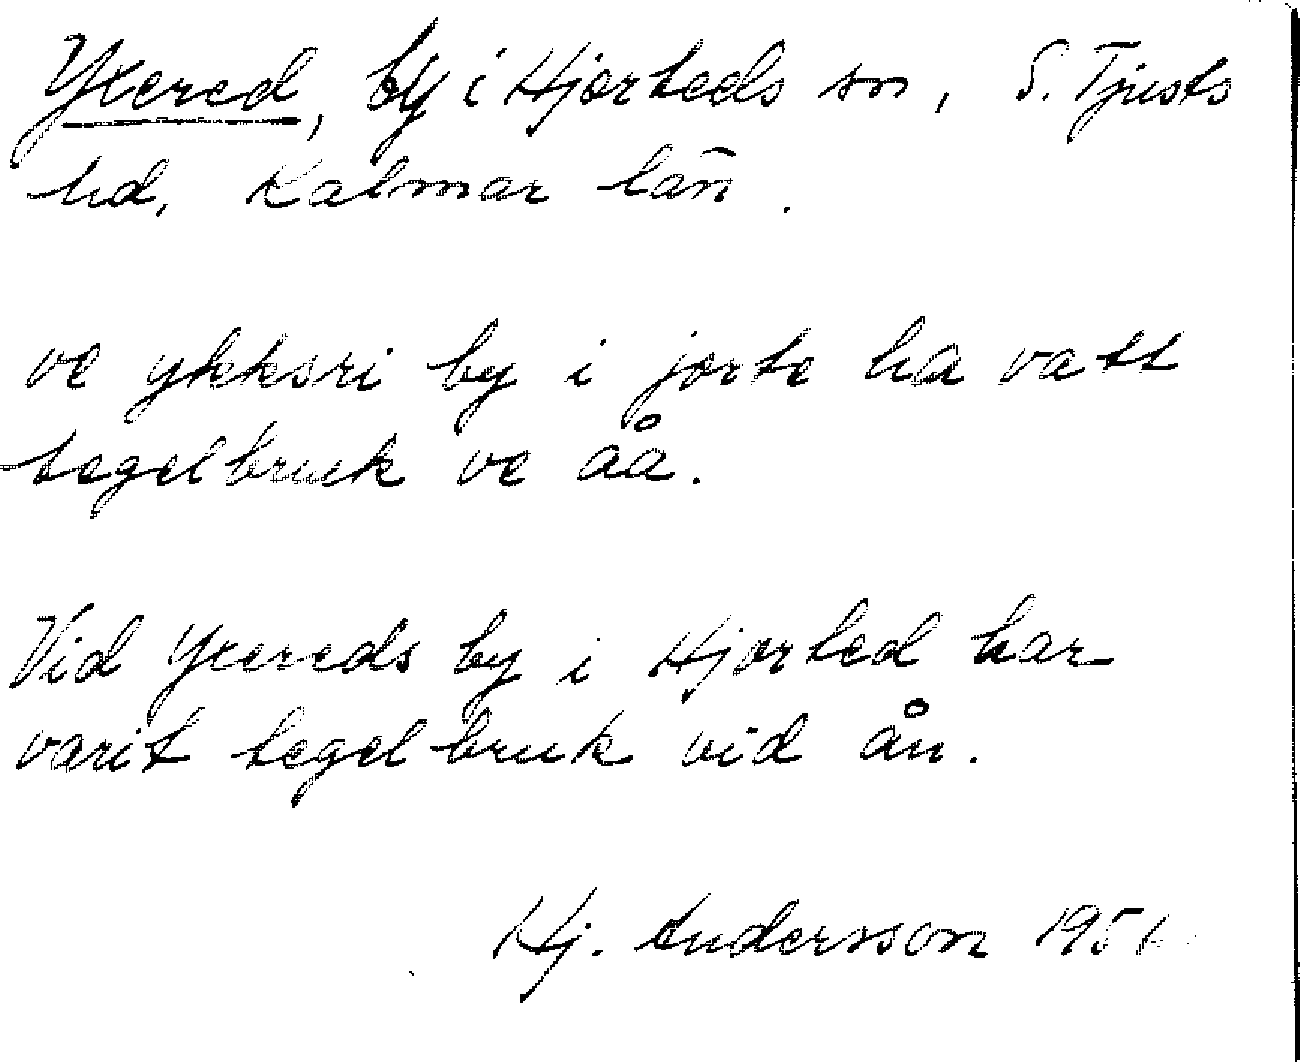 Yxered, by i Hjorteds sn, S. Tjusts
hd, Kalmar län.
ve ykksri by i jorte ha vatt
tegelbruk ve åå.
Vid Yxereds by i Hjorted har
varit tegelbruk vid ån.
Hj. Andersson 1951